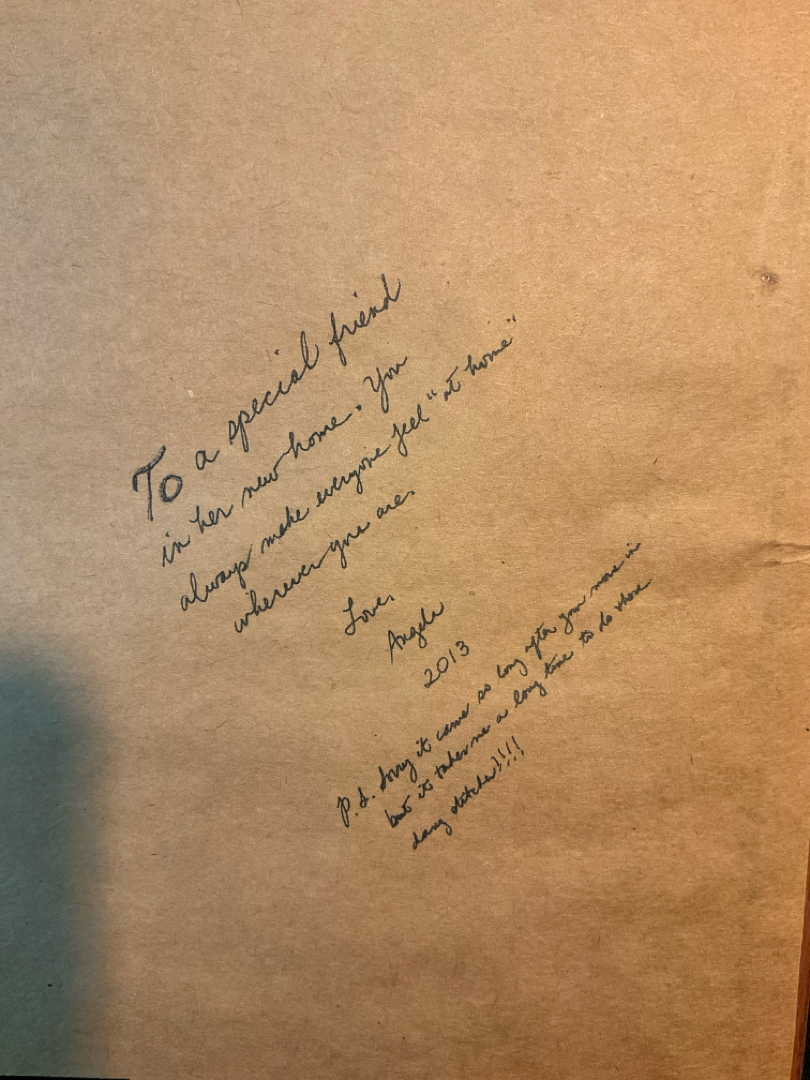 To a special friend
in her new home. You
always make everyone feel "at home"
wherever you are.
Love,
Angela
2013
P.S. Sorry it came so long after you move in
but it takes me a long time to do those
dang stitches!!!!